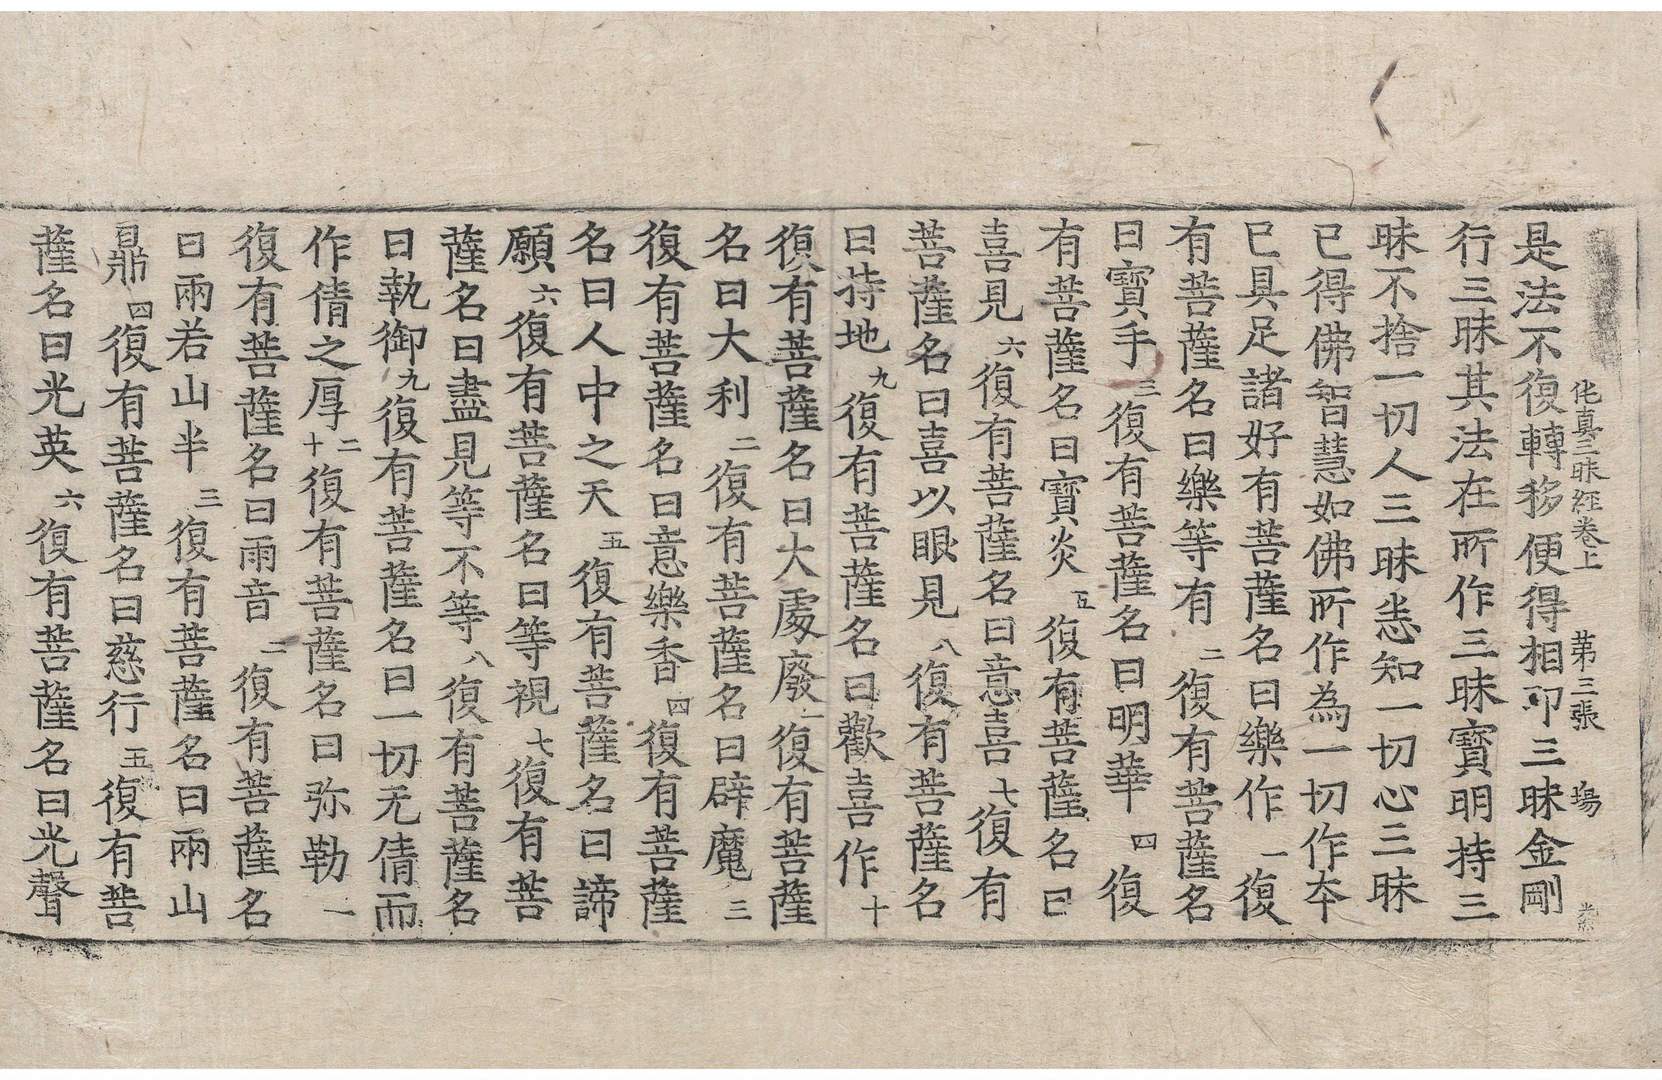 伅真三昧經卷上　第三張　場
是法不復轉移便得相印三昧金剛
行三昧其法在所作三昧寶明持三
昧不捨一切人三昧悉知一切心三昧
已得佛智慧如佛所作為一切作本
已具足諸好有菩薩名曰樂作一復
有菩薩名曰樂等有二復有菩薩名
曰寶手三復有菩薩名曰明華四復
有菩薩名曰寶炎五復有菩薩名曰
喜見六復有菩薩名曰意喜七復有
菩薩名曰喜以眼見八復有菩薩名
曰持地九復有菩薩名曰歡喜作十
復有菩薩名曰大處廢一復有菩薩
名曰大利二復有菩薩名曰辟魔三
復有菩薩名曰意樂香四復有菩薩
名曰人中之天五復有菩薩名曰諦
願六復有菩薩名曰等視七復有菩
薩名曰盡見等不等八復有菩薩名
曰執御九復有菩薩名曰一切无倩而
作倩之厚二十復有菩薩名曰弥勒一
復有菩薩名曰雨音二復有菩薩名
曰兩若山半三復有菩薩名曰兩山
鼎四復有菩薩名曰慈行五復有菩
薩名曰光英六復有菩薩名曰光聲